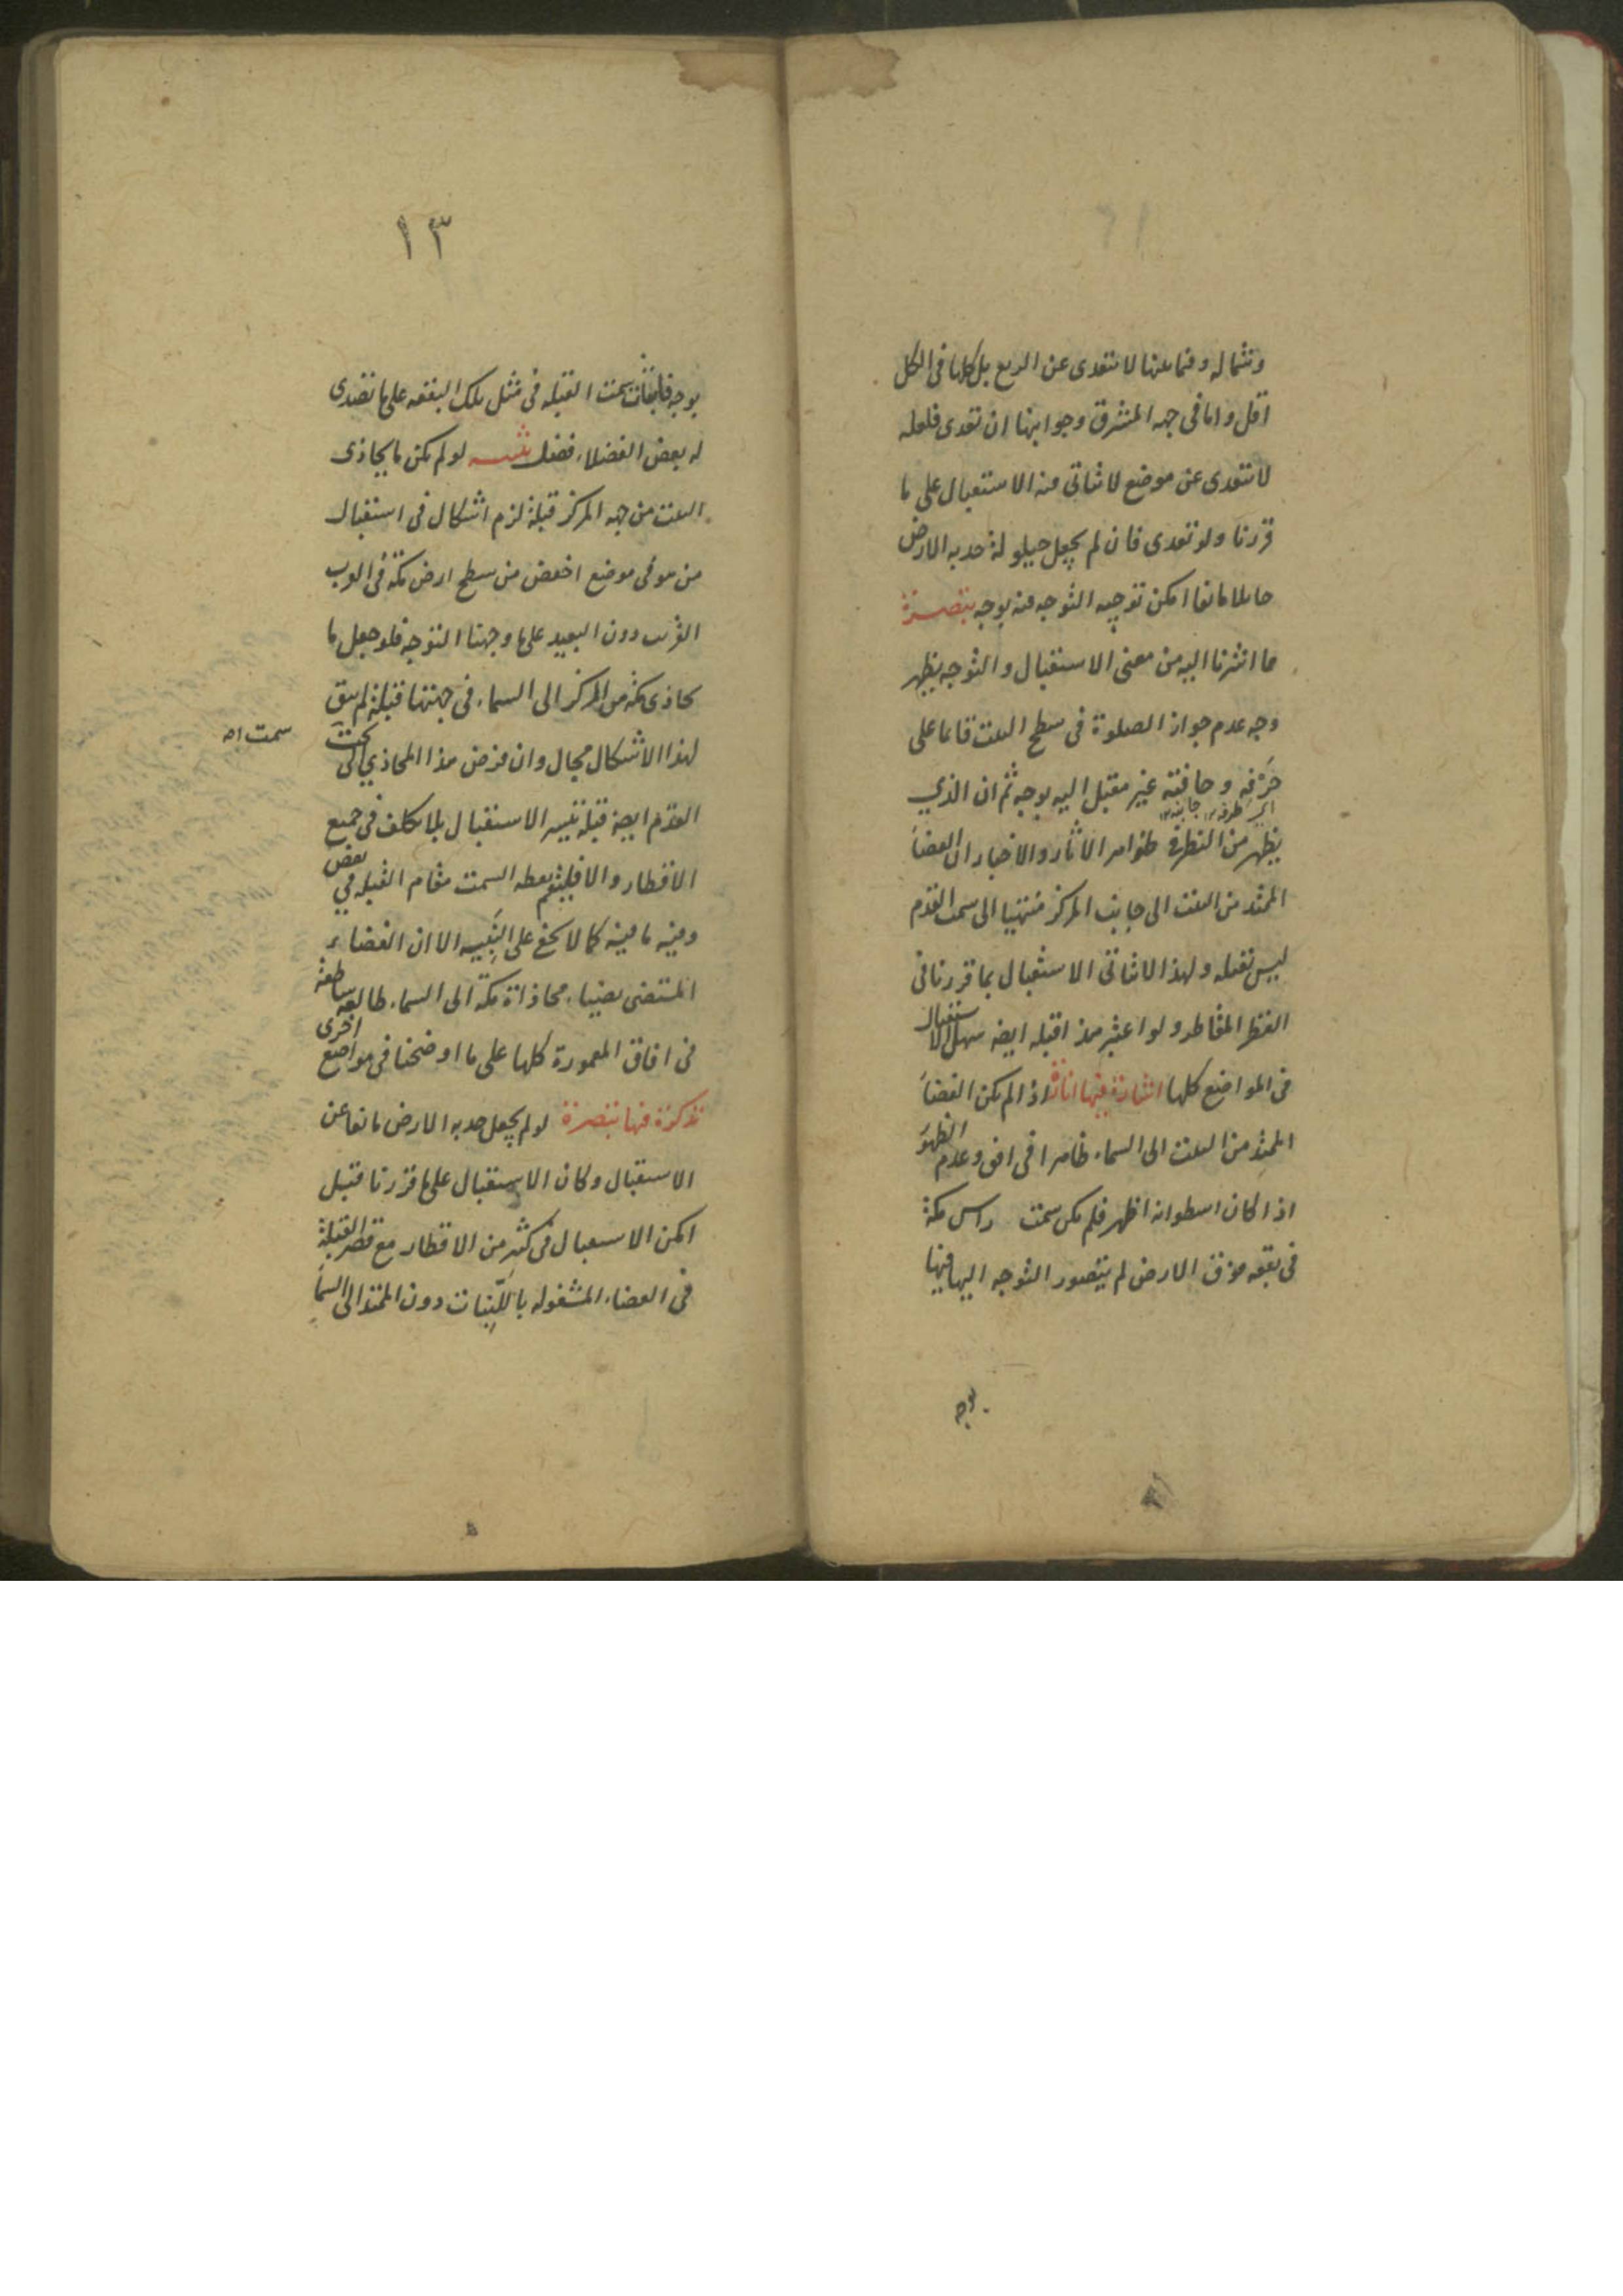 وشماله وفيما بينها لا تتعدى عن الربع بل كلها فى الكل
اقل واما فى جهه المشرق وجوابها ان تعدى فلعله
لا تتعدى عن موضع لا يتاتى منه الاستقبال على ما
قررنا ولو تعدى فان لم يجعل حيلولة حدبه الارض
حائلا مانعا امكن توجيه التوجه منه بوجه تبصرة
مما اشرنا اليه من معنى الاستقبال والتوجه يظهر
وجه عدم جواز الصلوة فى سطح البيت قائما على
حَرْفِه وحافته غير مقبل اليه بوجه ثم ان الذي
اى طرفه ١٢ جانبه ١٢
يظهر من النظر فى ظواهر الاثار والاخبار ان الفضاء
الممتد من البيت الى جانب المركز منتهيا الى سمت القدم
ليس بقبله ولهذا لا يتاتى الاستقبال بما قررنا فى
القطر المقاطر ولو اعتبر هذا قبله ايضه سهل الاستقبال
فى المواضع كلها اشارة فيها انارة اذا لم يكن الفضاء
الممتد من البيت الى السماء ظاهرا فى افق وعدم الظهور
اذا كان اسطوانه اظهر فلم يكن سمت راس مكة
فى بقعه فوق الارض لم يتصور التوجه اليها فيها
بوجه
١٣
بوجه سمت القبله فى مثل تلك البقعه على ما تصدى
له بعض الفضلاء فضل تنبيه لو لم يكن ما يحاذى
البيت من جهه المركز قبلة لزم اشكال فى استقبال
من هو فى موضع اخفض من سطح ارض مكه فى القرب
القريب دون البعيد على ما وجهنا التوجه فلو جعل ما
يحاذى مكه من المركز الى السماء فى جهتها قبلة لم يبق
لهذا الاشكال مجال وان فرض هذا المحاذي الى تحت
سمت اه
القدم ايضه قبله تيسر الاستقبال بلا تكلف فى جميع
الاقطار والا فليثم نقطه السمت مقام القبله في بعض
وفيه ما فيه كما لا يخفى على النَبيه الا ان الفضاء
المستضى بضياء محاذاة مكة الى السماء طالعه ساطعة
فى افاق المعمورة كلها على ما اوضحنا فى مواضع اخرى
تذكرة فيها تبصرة لو لم يجعل حدبه الارض مانعا عن
الاستقبال وكان الاستقبال على ما قررنا قبل
امكن الاستقبال فى كثير من الاقطار مع قصر القبلة
فى الفضاء المشغوله باللّبِنات دون الممتد الى السماء